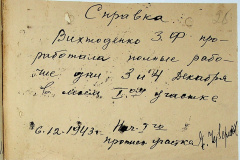 Справка
Вихтоденко З.Ф про-
работала полные рабо-
чие дни, 3 и 4, Декабря
в моём участке
6.12.1943г. Нач. 3го
участка